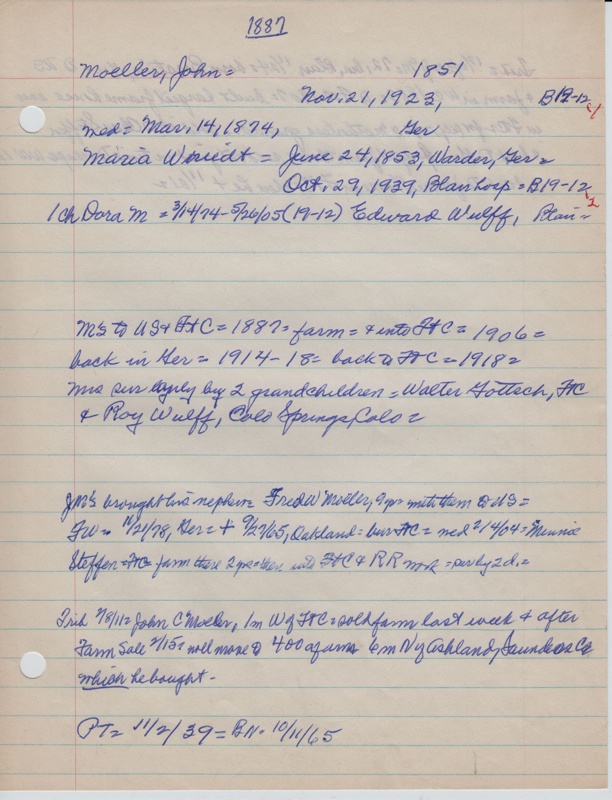 1887
Moeller, John = 1851
Nov. 21, 1923, B 19-12 c/1
med = Mar. 14, 1874, Ger
Maria Wendt = June 24, 1853, Warder, Ger =
Oct. 29, 1939, Blair hosp = B 19-12
1 ch Dora M = 3/14/74 - 5/26/05 (19-12) Edward Wulff, Blair =
M's to US & Ft C = 1887 = farm = & into Ft C = 1906 =
back in Ger = 1914-18 = back to Ft C = 1918 =
Mrs sur only by 2 grandchildren = Walter Gottsch, Ft C
& Roy Wulff, Colo Springs, Colo =
J M's brought his nephew = Fred W Moeller, 9 yrs with them to US =
FW = 11/21/78, Ger = + 9/27/65, Oakland = bur Ft C = med 2/14/04 = Minnie
Steffen = Ft C = farm there 2 yrs = then into Ft C & RR = sur by 2 d. =
Trib 2/8/11 = John C Moeller, 1 m W of Ft C = sold farm last week & after
Farm Sale 2/15 = will move to 400 a farm 6 m N of Ashland, Saunders Co
which he bought -
PT = 11/2/39 = BN = 10/11/65